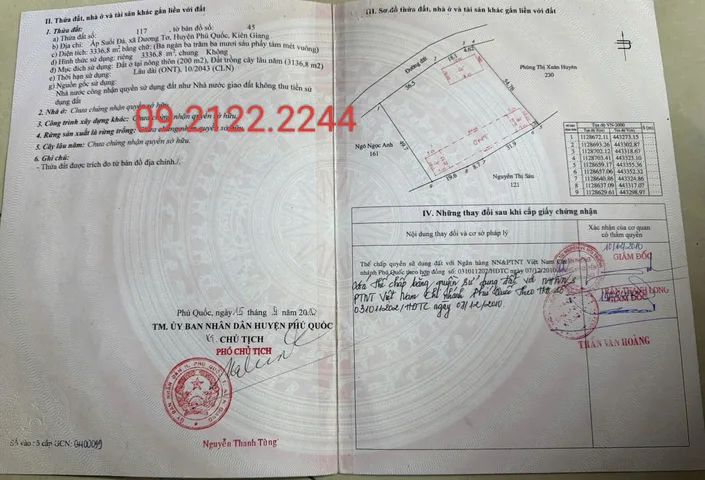 II. Thửa đất, nhà ở và tài sản khác gắn liền với đất
1. Thửa đất:
a) Thửa đất số: 117 , tờ bản đồ số: 45
b) Địa chỉ: Ấp Suối Đá, xã Dương Tơ, Huyện Phú Quốc, Kiên Giang
c) Diện tích: 3336,8 m² bằng chữ: (Ba ngàn ba trăm ba mươi sáu phẩy tám mét vuông)
d) Hình thức sử dụng: riêng 3336,8 m², chung Không
đ) Mục đích sử dụng: Đất ở tại nông thôn (200 m2), Đất trồng cây lâu năm (3136,8 m2)
e) Thời hạn sử dụng: Lâu dài (ONT), 10/2043 (CLN)
g) Nguồn gốc sử dụng:
Nhà nước công nhận quyền sử dụng đất như Nhà nước giao đất không thu tiền sử
dụng đất
2. Nhà ở: Chưa chứng nhận quyền sở hữu.
3. Công trình xây dựng khác: Chưa chứng nhận quyền sở hữu.
4. Rừng sản xuất là rừng trồng: Chưa chứng nhận quyền sở hữu.
5. Cây lâu năm: Chưa chứng nhận quyền sở hữu.
6. Ghi chú:
- Thửa đất được trích đo từ bản đồ địa chính./.
09.2122.2244
Phú Quốc, ngày 15 tháng năm 2010
TM. ỦY BAN NHÂN DÂN HUYỆN PHÚ QUỐC
KT CHỦ TỊCH
PHÓ CHỦ TỊCH
Nguyễn Thanh Tùng
Số vào: 3 cấp GCN:
III. Sơ đồ thửa đất, nhà ở và tài sản khác gắn liền với đất
Đường đất
36.5
19.1
4.62
54.76
49.7
19.6
8.7
31.9
Phùng Thị Xuân Huyên
230
Ngô Ngọc Anh
161
Nguyễn Thị Sáu
121
Tọa độ VN-2000
1128672.11 443273.15
1128693.26 443302.87
1128702.12 443318.67
1128703.41 443323.10
1128659.17 443355.36
1128657.06 443352.32
1128640.86 443324.86
1128637.09 443317.07
1128629.61 443298.97
IV. Những thay đổi sau khi cấp giấy chứng nhận
Nội dung thay đổi và cơ sở pháp lý
Xác nhận của cơ quan
có thẩm quyền
Thế chấp quyền sử dụng đất với Ngân hàng NN&PTNT Việt Nam Chi
nhánh Phú Quốc theo hợp đồng số: 031011202/HĐTC ngày 07/12/2010
thế chấp bằng quyền sử dụng đất với
PTNT Việt Nam chi nhánh Phú Quốc theo
ngày 07/12/2010
GIÁM ĐỐC
TRẦN THANH LONG
GIÁM ĐỐC
TRẦN VĂN HOÀNG